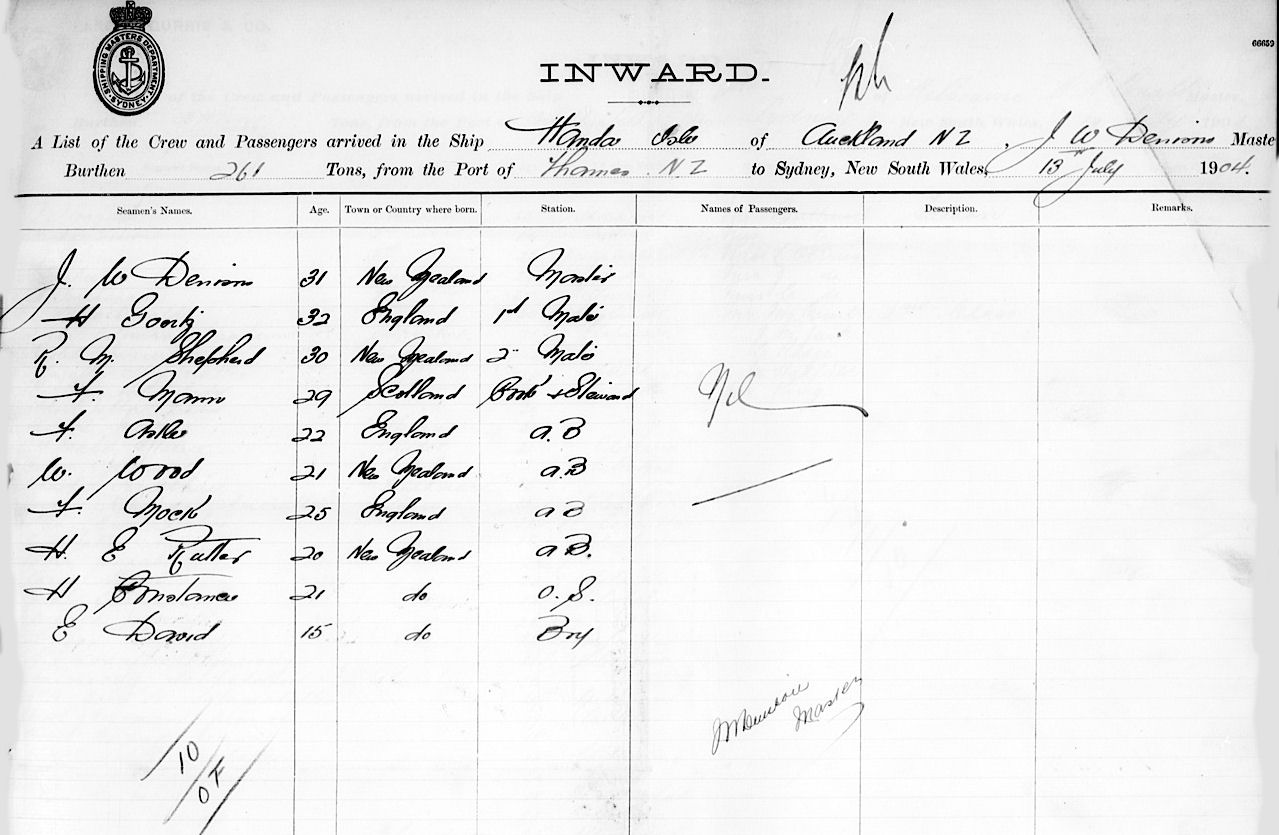 SHIPPING MASTERS DEPARTMENT SYDNEY
66659
INWARD.
A List of the Crew and Passengers arrived in the Ship Handa Isle of Auckland N Z, J W Denison Maste
Burthen 261 Tons, from the Port of Thames N Z to Sydney, New South Wales, 13 July 1904.
Seamen's Names. Age. Town or Country where born. Station. Names of Passengers. Description. Remarks.
J. W Denison 31 New Zealand Master
H 32 England 1st Mate
R. M. Shepherd 30 New Zealand 2 Mate
F. Mann 29 Scotland Cook + Steward
Nil
F. 22 England A.B
W. Wood 21 New Zealand a.B
F. Mock 25 England a B
H. E Rutter 20 New Zealand a B.
H Constance 21 do O.S.
E David 15 do Boy
JW Denison
Master
10
OF